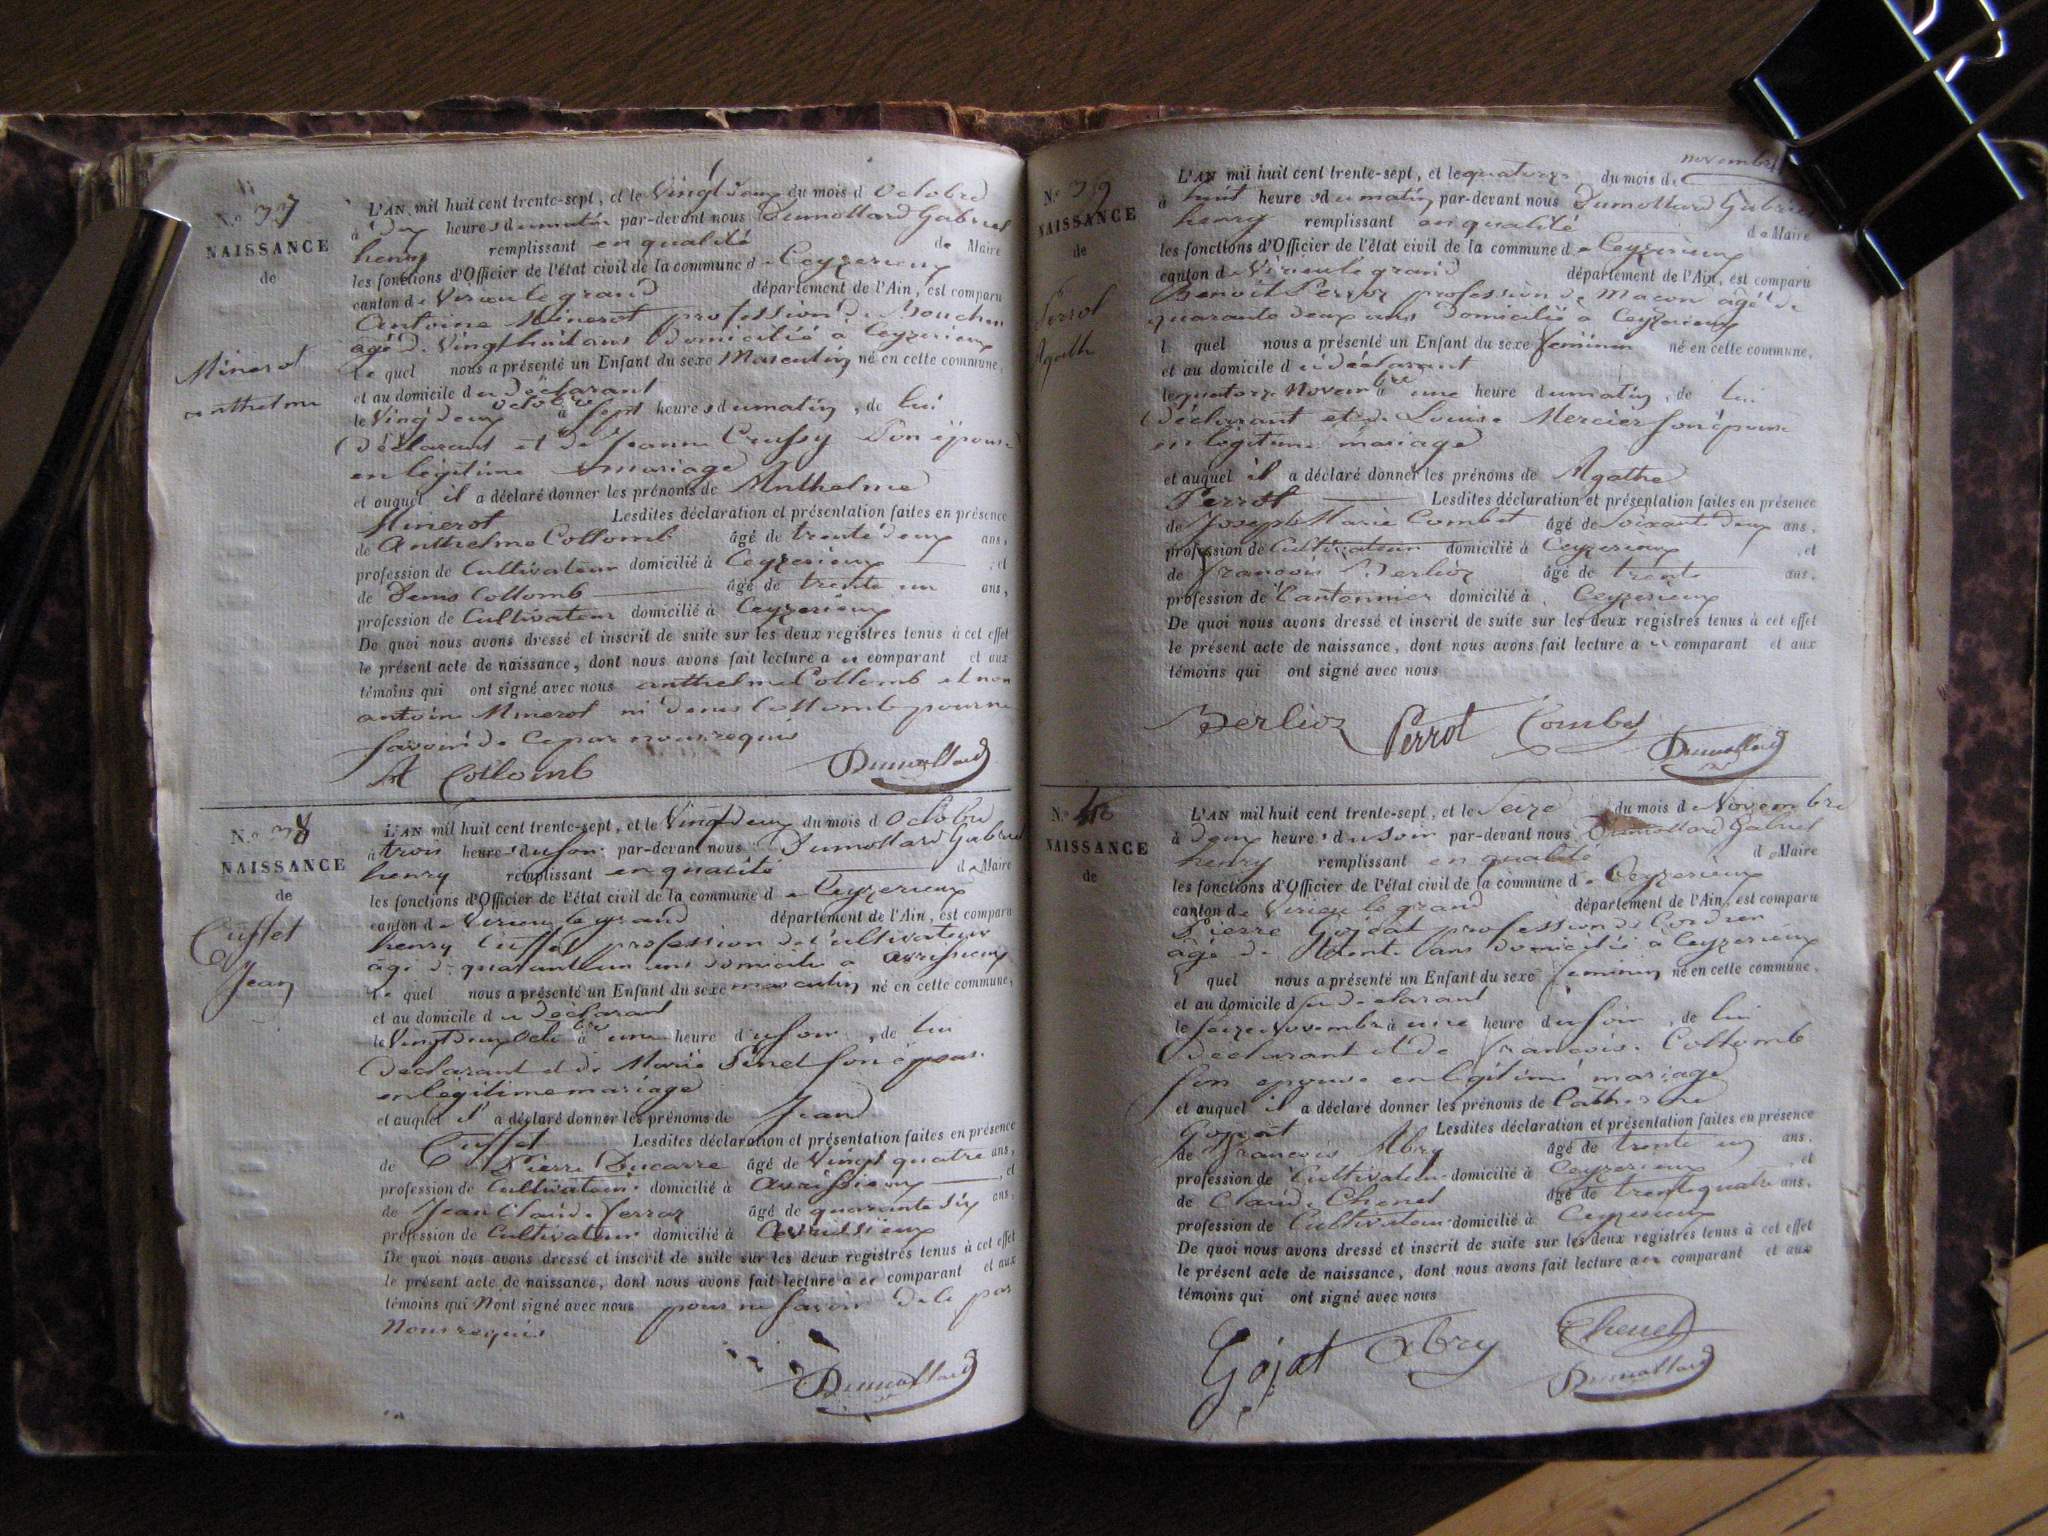 N.o 37
NAISSANCE
de
Minerot
anthelme
L'AN mil huit cent trente-sept, et le Vingt deux du mois d octobre
à dix heures du matin par-devant nous Dumollard Gabriel
henry remplissant en qualité de Maire
les fonctions d'Officier de l'état civil de la commune de Ceyzerieux
canton de Virieu le grand département de l'Ain, est comparu
Antoine Minerot profession de
agé de Vingt huit ans domicilié à Ceyzerieux
le quel nous a présenté un Enfant du sexe Masculin né en cette commune,
et au domicile du Déclarant
le Vingt deux octobre à sept heures du matin, de lui
déclarant et de Jeanne Crussy son épouse
en légitime mariage
et auquel il a déclaré donner les prénoms de Anthelme
Minerot Lesdites déclaration et présentation faites en présence
de Anthelme Collomb âgé de trente deux ans,
profession de Cultivateur domicilié à Ceyzerieux, et
de Denis Collomb âgé de trente un ans,
profession de Cultivateur domicilié à Ceyzerieux
De quoi nous avons dressé et inscrit de suite sur les deux registres tenus à cet effet
le présent acte de naissance, dont nous avons fait lecture au comparant et aux
témoins qui ont signé avec nous anthelme Collomb et non
antoine Minerot ni denis Collomb pour ne
savoir de ce par nous requis
A Collomb Dumollard
N.o 38
NAISSANCE
de
Cuffet
Jean
L'AN mil huit cent trente-sept, et le Vingt deux du mois d octobre
à trois heures du soir par-devant nous Dumollard Gabriel
henry remplissant en qualité de Maire
les fonctions d'Officier de l'état civil de la commune de Ceyzerieux
canton de Virieu le grand département de l'Ain, est comparu
henry Cuffet profession de Cultivateur
âgé de quarante un ans domicilié à avrissieux
le quel nous a présenté un Enfant du sexe masculin né en cette commune,
et au domicile du déclarant
le Vingt deux Octobre à une heure du soir, de lui
Déclarant et de Marie Pinet son épouse
en légitime mariage
et auquel il a déclaré donner les prénoms de Jean
Cuffet Lesdites déclaration et présentation faites en présence
de Pierre Ducarre âgé de Vingt quatre ans,
profession de Cultivateur domicilié à avrissieux, et
de Jean Claude Ferraz âgé de quarante six ans,
profession de Cultivateur domicilié à
De quoi nous avons dressé et inscrit de suite sur les deux registres tenus à cet effet
le présent acte de naissance, dont nous avons fait lecture au comparant et aux
témoins qui Nont signé avec nous pour ne savoir de le par
Nous requis
Dumollard
N.o 39
NAISSANCE
de
Perrot
Agathe
novembre
L'AN mil huit cent trente-sept, et le quatorze du mois de
à huit heures du matin par-devant nous Dumollard Gabriel
henry remplissant en qualité de Maire
les fonctions d'Officier de l'état civil de la commune de Ceyzerieux
canton de Virieu le grand département de l'Ain, est comparu
Benoit Perrot profession de Macon âgé de
quarante deux ans Domicilié à Ceyzerieux
l quel nous a présenté un Enfant du sexe feminin né en cette commune,
et au domicile du déclarant
le quatorze Novembre à une heure du matin, de lui
déclarant et de Louise Mercier son épouse
en légitime mariage
et auquel il a déclaré donner les prénoms de Agathe
Perrot Lesdites déclaration et présentation faites en présence
de Joseph Marie Combet âgé de Soixante deux ans,
profession de Cultivateur domicilié à Ceyzerieux, et
de francois Berlioz âgé de trente ans,
profession de Cantonnier domicilié à Ceyzerieux
De quoi nous avons dressé et inscrit de suite sur les deux registres tenus à cet effet
le présent acte de naissance, dont nous avons fait lecture au comparant et aux
témoins qui ont signé avec nous
Berlioz Perrot Combet
Dumollard
N.o 40
NAISSANCE
de
L'AN mil huit cent trente-sept, et le Seize du mois de Novembre
à deux heures du soir par-devant nous Dumollard Gabriel
henry remplissant en qualité de Maire
les fonctions d'Officier de l'état civil de la commune de Ceyzerieux
canton de Virieu le grand département de l'Ain, est comparu
Pierre Gojat profession de
âgé de trente ans domicilié à Ceyzerieux
l quel nous a présenté un Enfant du sexe feminin né en cette commune,
et au domicile du déclarant
le seize Novembre à une heure du soir, de lui
Déclarant et de francoise Collomb
son epouse en légitime mariage
et auquel il a déclaré donner les prénoms de Catherine
Gojat Lesdites déclaration et présentation faites en présence
de francois Abry âgé de trente un ans,
profession de Cultivateur domicilié à Ceyzerieux, et
de Claude Chenet âgé de trente quatre ans,
profession de Cultivateur domicilié à Ceyzerieux
De quoi nous avons dressé et inscrit de suite sur les deux registres tenus à cet effet
le présent acte de naissance, dont nous avons fait lecture au comparant et aux
témoins qui ont signé avec nous
Gojat Abry Chenet
Dumollard